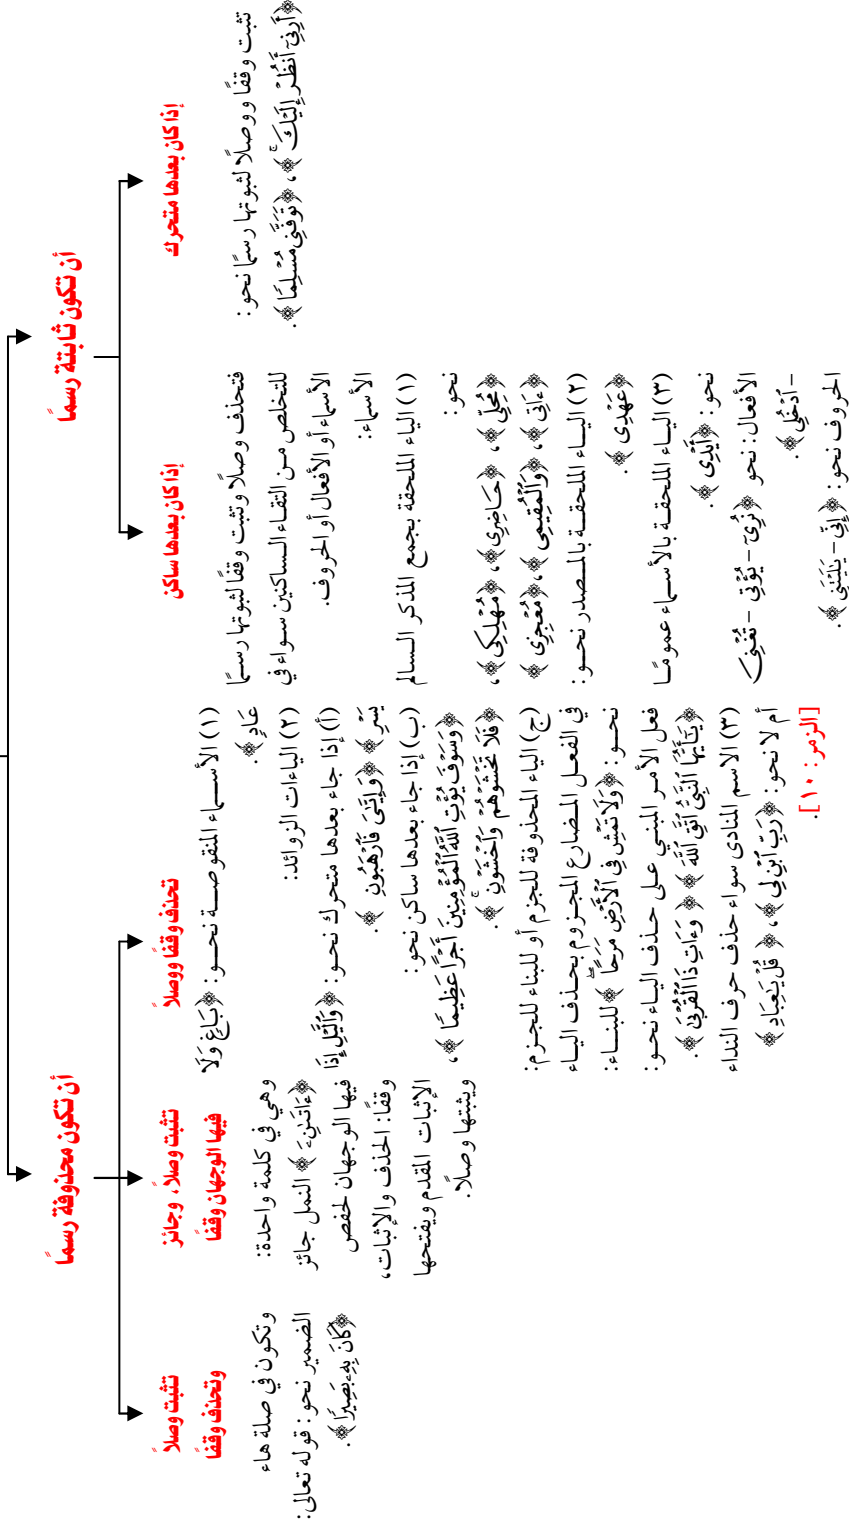 أن تكون ثابتة رسمًا
إذا كان بعدها متحرك
تثبت وقفًا ووصلًا لثبوتها رسمًا نحو:
﴿أَرِنِىٓ أَنظُرۡ إِلَيۡكَۚ﴾، ﴿تَوَفَّنِى مُسۡلِمًا﴾.
إذا كان بعدها ساكن
فتحذف وصلًا وتثبت وقفًا لثبوتها رسمًا
للتخلص من التقاء الساكنين سواء في
الأسماء أو الأفعال أو الحروف.
الأسماء:
(١) الياء الملحقة بجمع المذكر السالم
نحو:
﴿مُحِلِّى﴾، ﴿حَاضِرِى﴾، ﴿مُهۡلِكِى﴾،
﴿ءَاتِى﴾، ﴿وَٱلۡمُقِيمِى﴾، ﴿مُعۡجِزِى﴾
(٢) الياء الملحقة بالمصدر نحو:
﴿عَهۡدِى﴾.
(٣) الياء الملحقة بالأسماء عمومًا
نحو: ﴿أَيۡدِى﴾.
الأفعال: نحو ﴿نُرِىٓ - يُؤۡتِى - تُغۡنِى
- ٱدۡخُلِى﴾.
الحروف نحو: ﴿إِنِّى - يَٰلَيۡتَنِى﴾.
أن تكون محذوفة رسمًا
تحذف وقفًا ووصلًا
(١) الأسماء المنقوصة نحو: ﴿بَاغٖ وَلَا
عَادٖ﴾.
(٢) الياءات الزوائد:
(أ) إذا جاء بعدها متحرك نحو: ﴿وَٱلَّيۡلِ إِذَا
يَسۡرِ﴾ ﴿وَإِيَّٰىَ فَٱرۡهَبُونِ﴾.
(ب) إذا جاء بعدها ساكن نحو:
﴿وَسَوۡفَ يُؤۡتِ ٱللَّهُ ٱلۡمُؤۡمِنِينَ أَجۡرًا عَظِيمٗا﴾،
﴿فَلَا تَخۡشَوۡهُمۡ وَٱخۡشَوۡنِۚ﴾.
(ج) الياء المحذوفة للجزم أو للبناء للجزم:
في الفعل المضارع المجزوم بحذف الياء
نحو: ﴿وَلَا تَمۡشِ فِى ٱلۡأَرۡضِ مَرَحًاۖ﴾ للبناء:
فعل الأمر المبني على حذف الياء نحو:
﴿يَٰٓأَيُّهَا ٱلنَّبِىُّ ٱتَّقِ ٱللَّهَ﴾ ﴿وَءَاتِ ذَا ٱلۡقُرۡبَىٰ﴾.
(٣) الاسم المنادى سواء حذف حرف النداء
أم لا نحو: ﴿رَبِّ ٱبۡنِ لِى﴾، ﴿قُلۡ يَٰعِبَادِ﴾
[الزمر: ١٠].
تثبت وصلًا، وجائز
فيها الوجهان وقفًا
وهي في كلمة واحدة:
﴿ءَاتَىٰنِۦَ﴾ النمل جائز
فيها الوجهان لحفص
وقفًا: الحذف والإثبات،
الإثبات المقدم ويفتحها
ويثبتها وصلًا.
تثبت وصلًا
وتحذف وقفًا
وتكون في صلة هاء
الضمير نحو: قوله تعالى:
﴿كَانَ بِهِۦ بَصِيرٗا﴾.